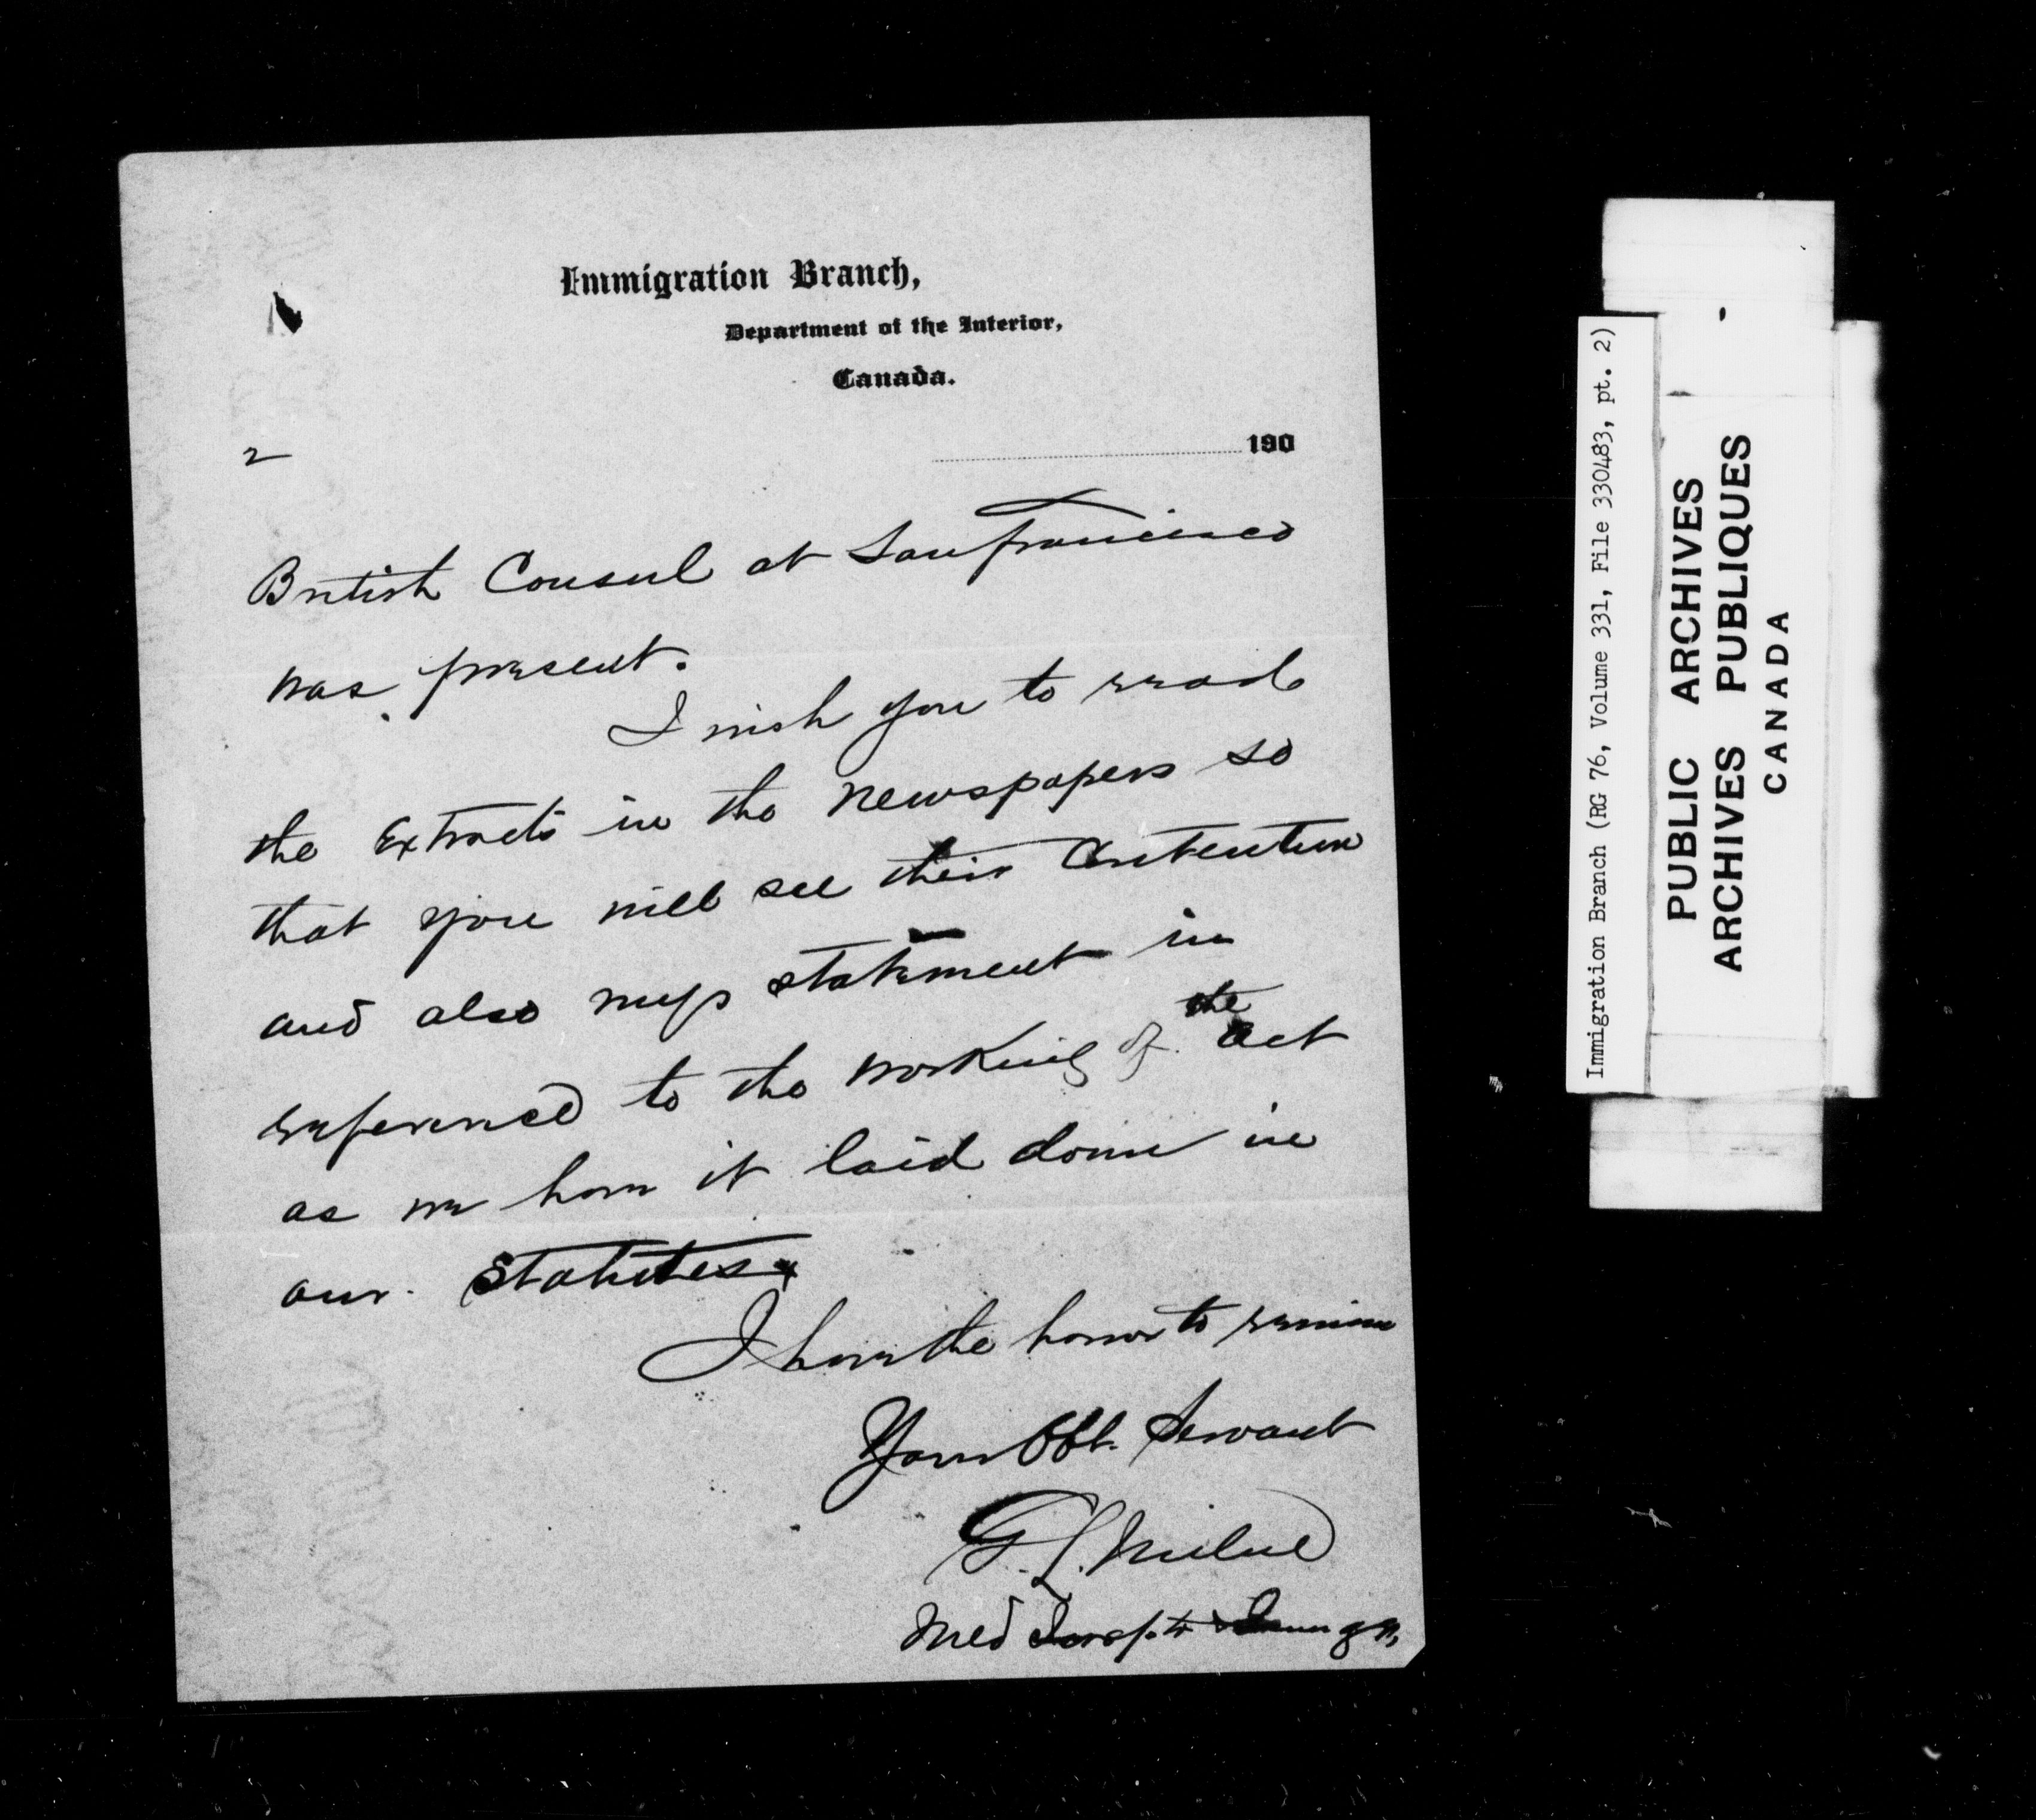 Immigration Branch,
Department of the Interior,
Canada.
190
2
British Consul at San francisco
was present.
I wish you to read
the Extracts in the newspapers so
that you will see their Contention
and also my statement in
reference to the working of the act
as we have it laid down in
our Statutes.
I have the honor to remain
Your Obt. Servant
G. L. Milne
Med Inspt &
Immigration Branch (RG 76, Volume 331, File 330483, pt. 2)
PUBLIC ARCHIVES
ARCHIVES PUBLIQUES
CANADA